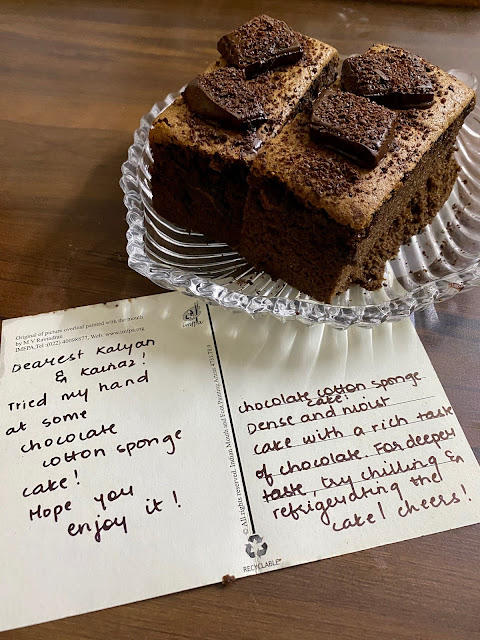 Original of picture overleaf painted with the mouth
by M.V. Ramadhas
IMFPA, Tel: (022) 40698877, Web: www.imfpa.org
imfpa
Dearest Kalyan
& Kainaz!
Tried my hand
at some
chocolate
cotton sponge
cake!
Hope you
enjoy it!
© All rights reserved. Indian Mouth and Foot Painting Artists
chocolate cotton sponge
cake!
Dense and moist
cake with a rich taste
of chocolate. For deeper
taste, try chilling &
refrigerating the
cake! Cheers!
RECYCLABLE